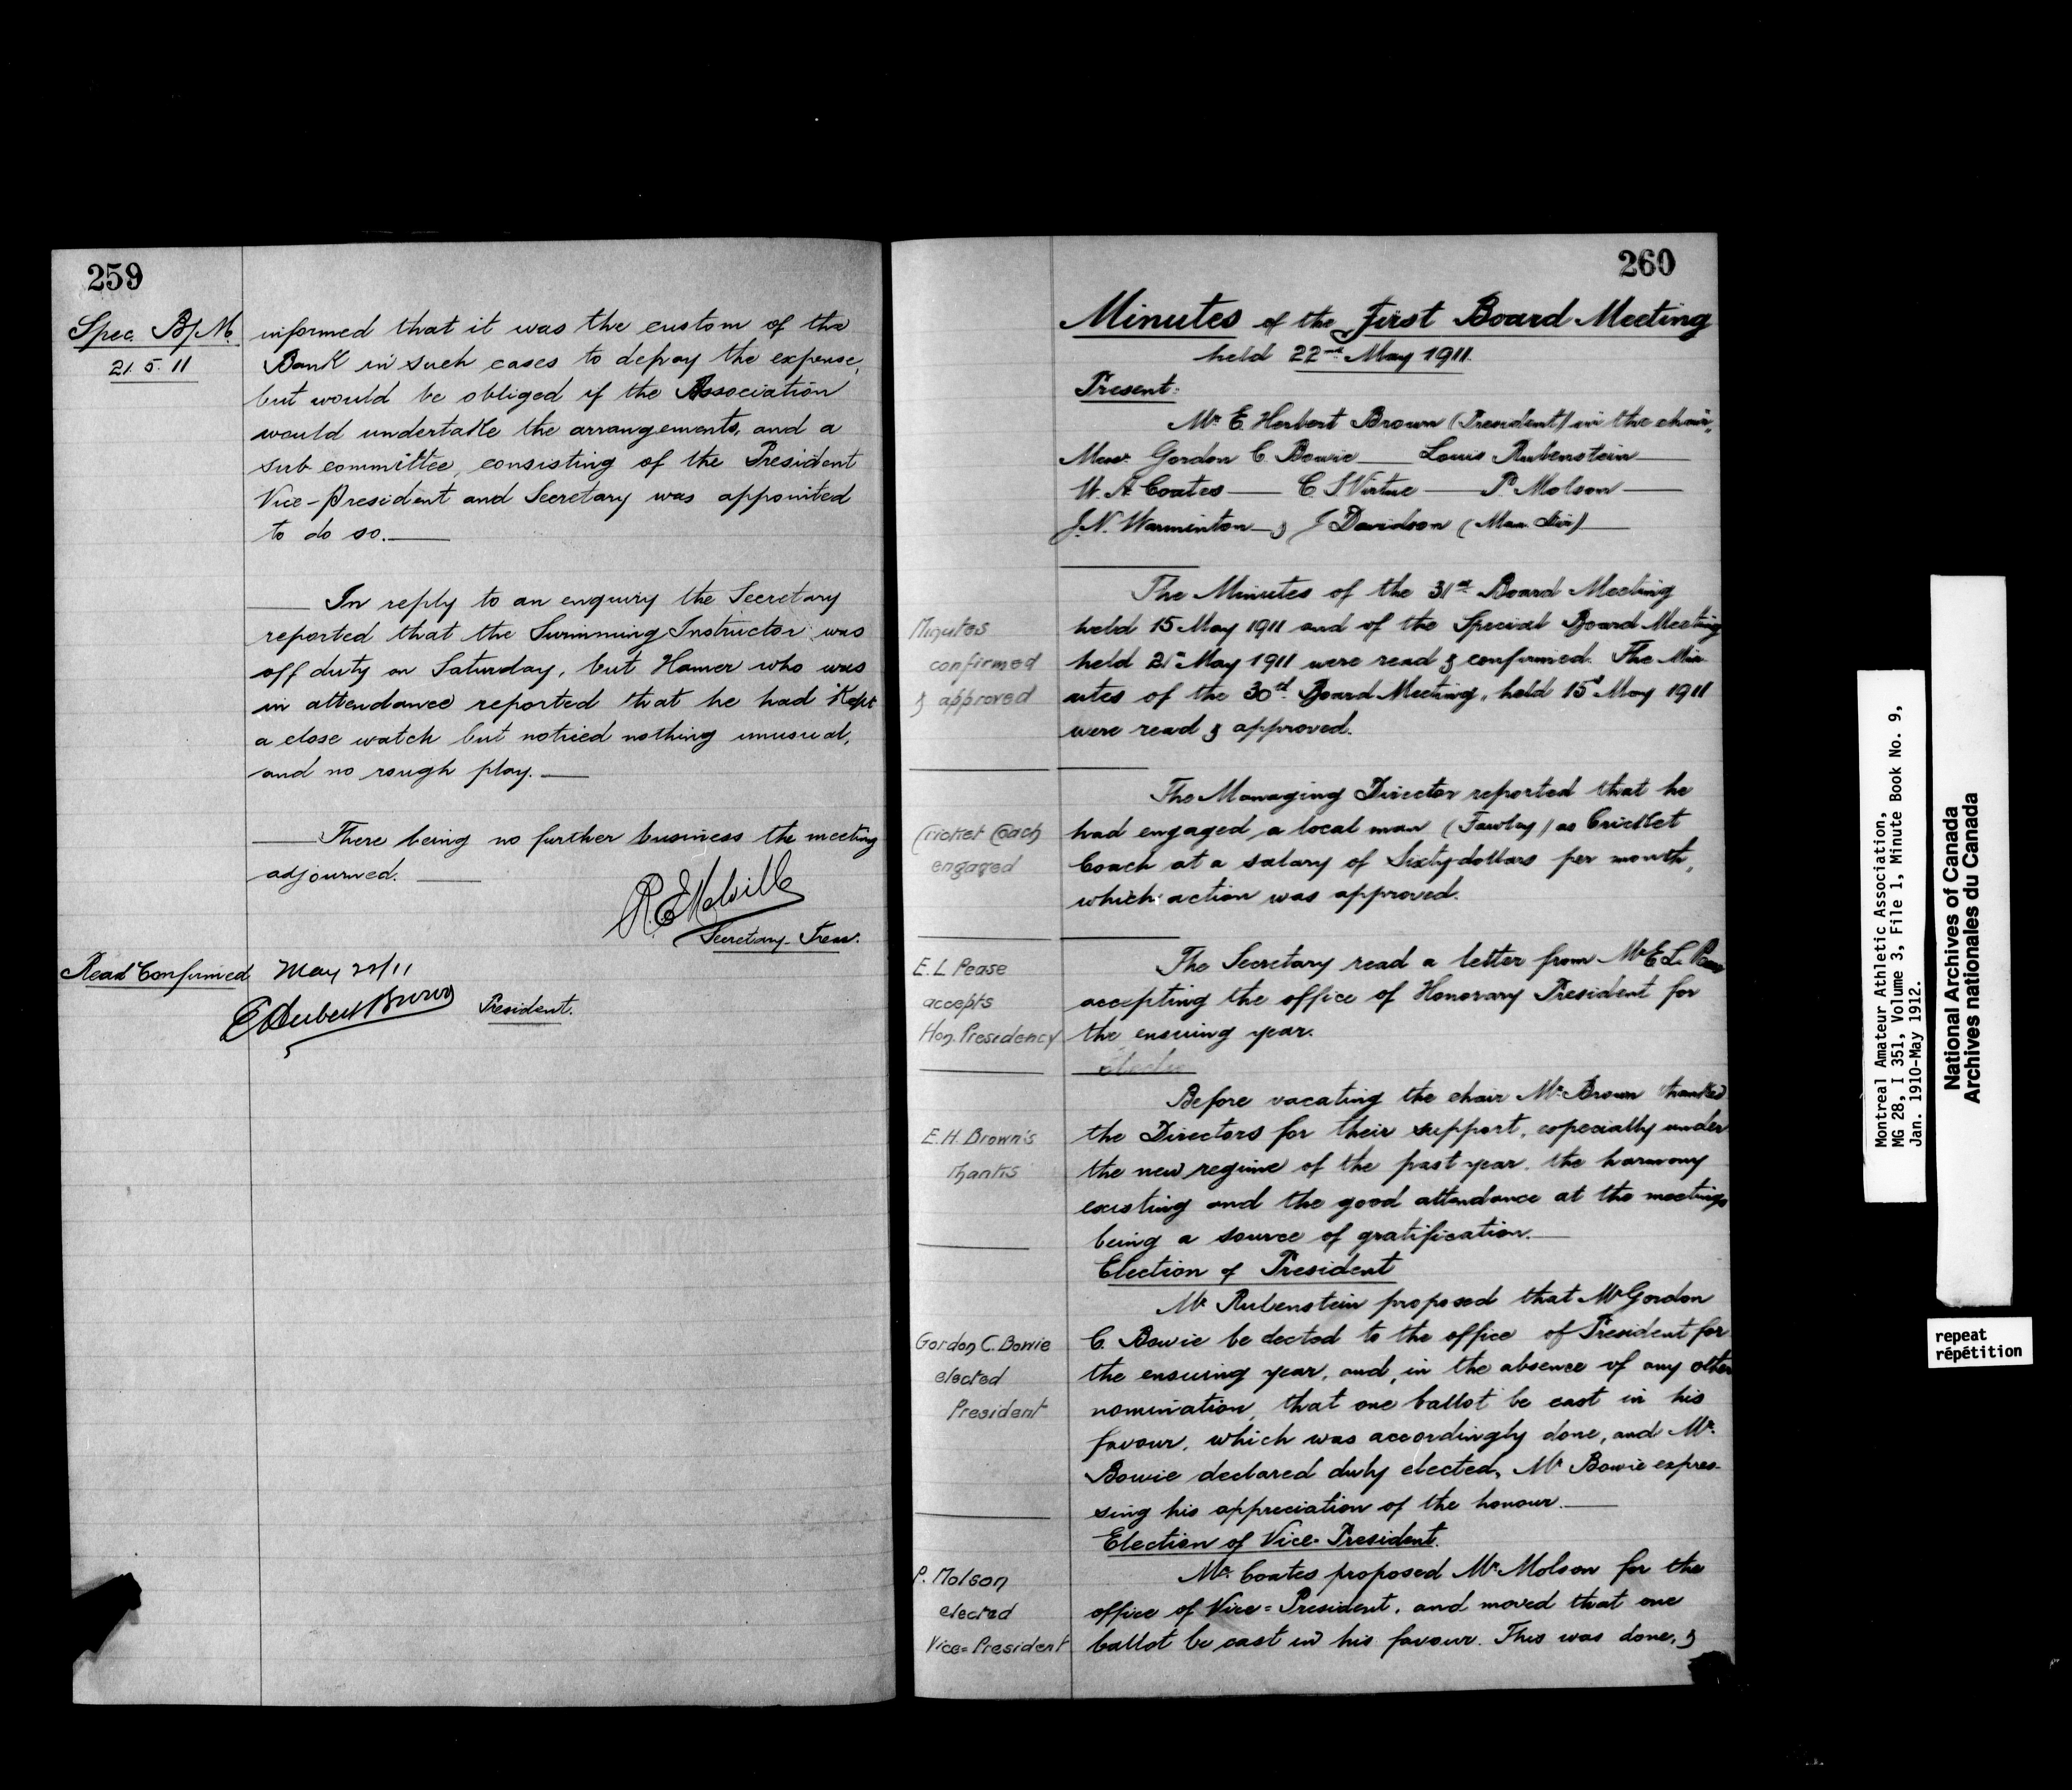 259
Spec. B/M.
21. 5. 11
informed that it was the custom of the
Bank in such cases to defray the expense,
but would be obliged if the Association
would undertake the arrangements, and a
sub committee, consisting of the President
Vice-President and Secretary was appointed
to do so.
In reply to an enquiry the Secretary
reported that the Swimming Instructor was
off duty on Saturday, but Hamer who was
in attendance reported that he had kept
a close watch but noticed nothing unusual,
and no rough play.
There being no further business the meeting
adjourned.
R. E. Melville
Secretary-Treas.
Read Confirmed May 22/11
E Herbert Brown President.
260
Minutes of the First Board Meeting
held 22nd May 1911.
Present:
Mr. E. Herbert Brown (President) in the chair,
Messrs. Gordon C. Bowie Louis Rubenstein
W. A. Coates C. S Virtue P. Molson
J. N. Warminton & J Davidson (Man. Dir)
Minutes
confirmed
& approved
The Minutes of the 31st Board Meeting
held 15 May 1911 and of the Special Board Meeting
held 21st May 1911 were read & confirmed. The Min-
utes of the 30th Board Meeting, held 15 May 1911
were read & approved.
Cricket Coach
engaged
The Managing Director reported that he
had engaged a local man (Fawley) as Cricket
Coach at a salary of Sixty dollars per month,
which action was approved.
E. L Pease
accepts
Hon. Presidency
The Secretary read a letter from Mr E. L. Pease
accepting the office of Honorary President for
the ensuing year.
E. H. Brown's
thanks
Before vacating the chair Mr. Brown thanked
the Directors for their support, especially under
the new regime of the past year, the harmony
existing and the good attendance at the meetings
being a source of gratification.
Election of President
Gordon C. Bowie
elected
President
Mr Rubenstein proposed that Mr Gordon
C. Bowie be elected to the office of President for
the ensuing year, and, in the absence of any other
nomination, that one ballot be cast in his
favour, which was accordingly done, and Mr.
Bowie declared duly elected, Mr Bowie expres-
sing his appreciation of the honour.
Election of Vice-President.
P. Molson
elected
Vice-President
Mr. Coates proposed Mr. Molson for the
office of Vice-President, and moved that one
ballot be cast in his favour. This was done, &
Montreal Amateur Athletic Association,
MG 28, I 351, Volume 3, File 1, Minute Book No. 9,
Jan. 1910-May 1912.
National Archives of Canada
Archives nationales du Canada
repeat
répétition